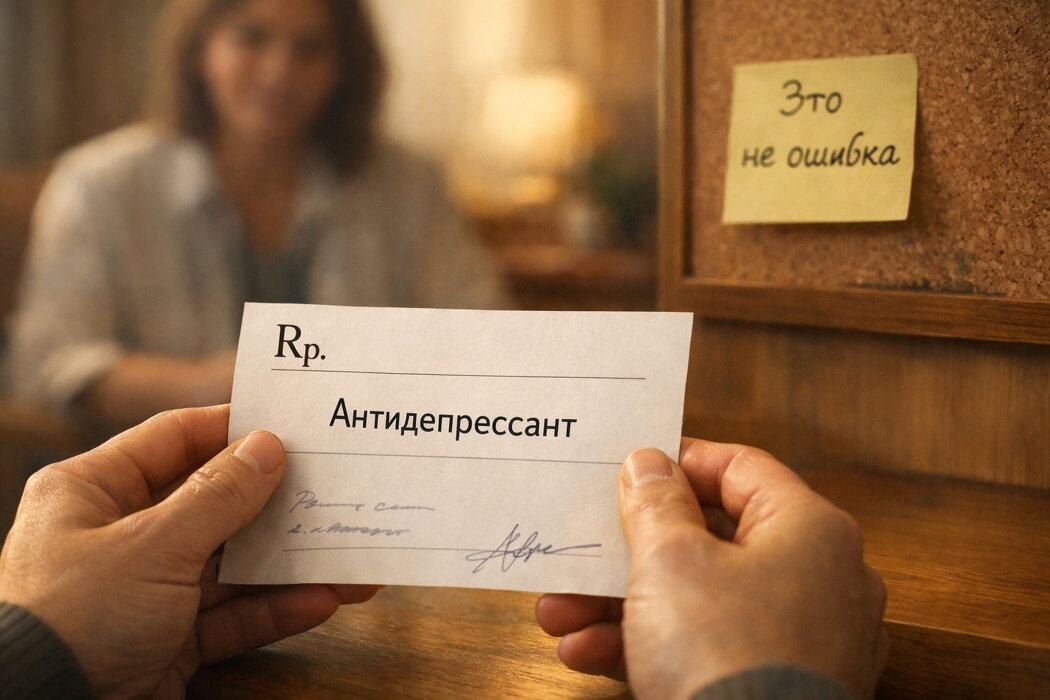 Зто
не ошибка
Rp.
Антидепрессант